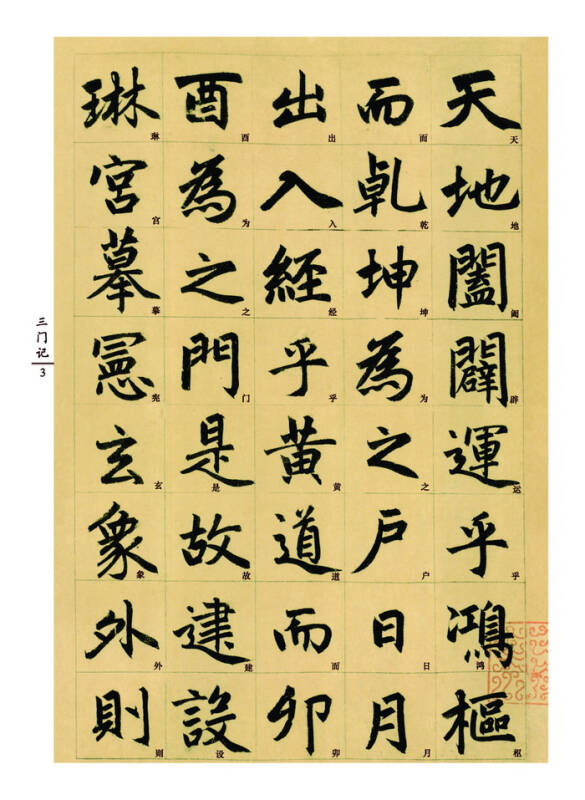 天地闔闢運乎鴻樞
天地阖辟运乎鸿枢
而乾坤為之戶日月
而乾坤为之户日月
出入經乎黄道而卯
出入经乎黄道而卯
酉為之門是故建設
酉为之门是故建设
琳宮摹憲玄象外則
琳宫摹宪玄象外则
三门记
3